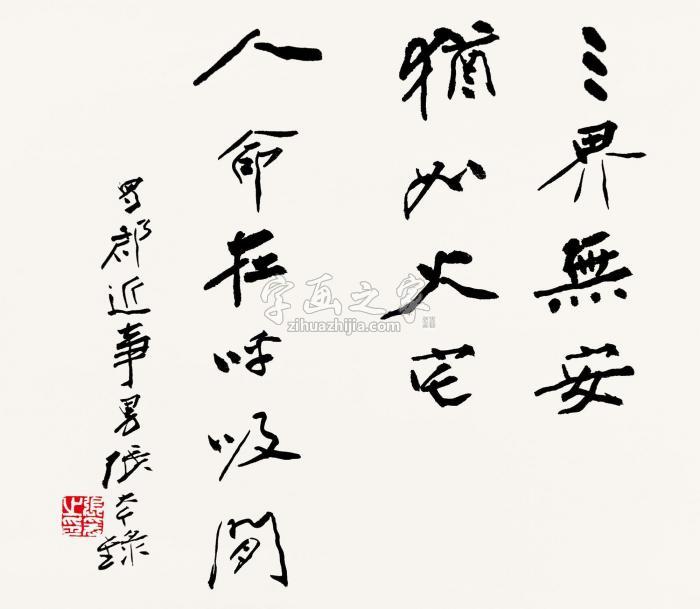 三界無安
猶如火宅
人命在呼吸間
蜀郡近事男張大千錄
張爰之印
字画之家
zihuazhijia.com